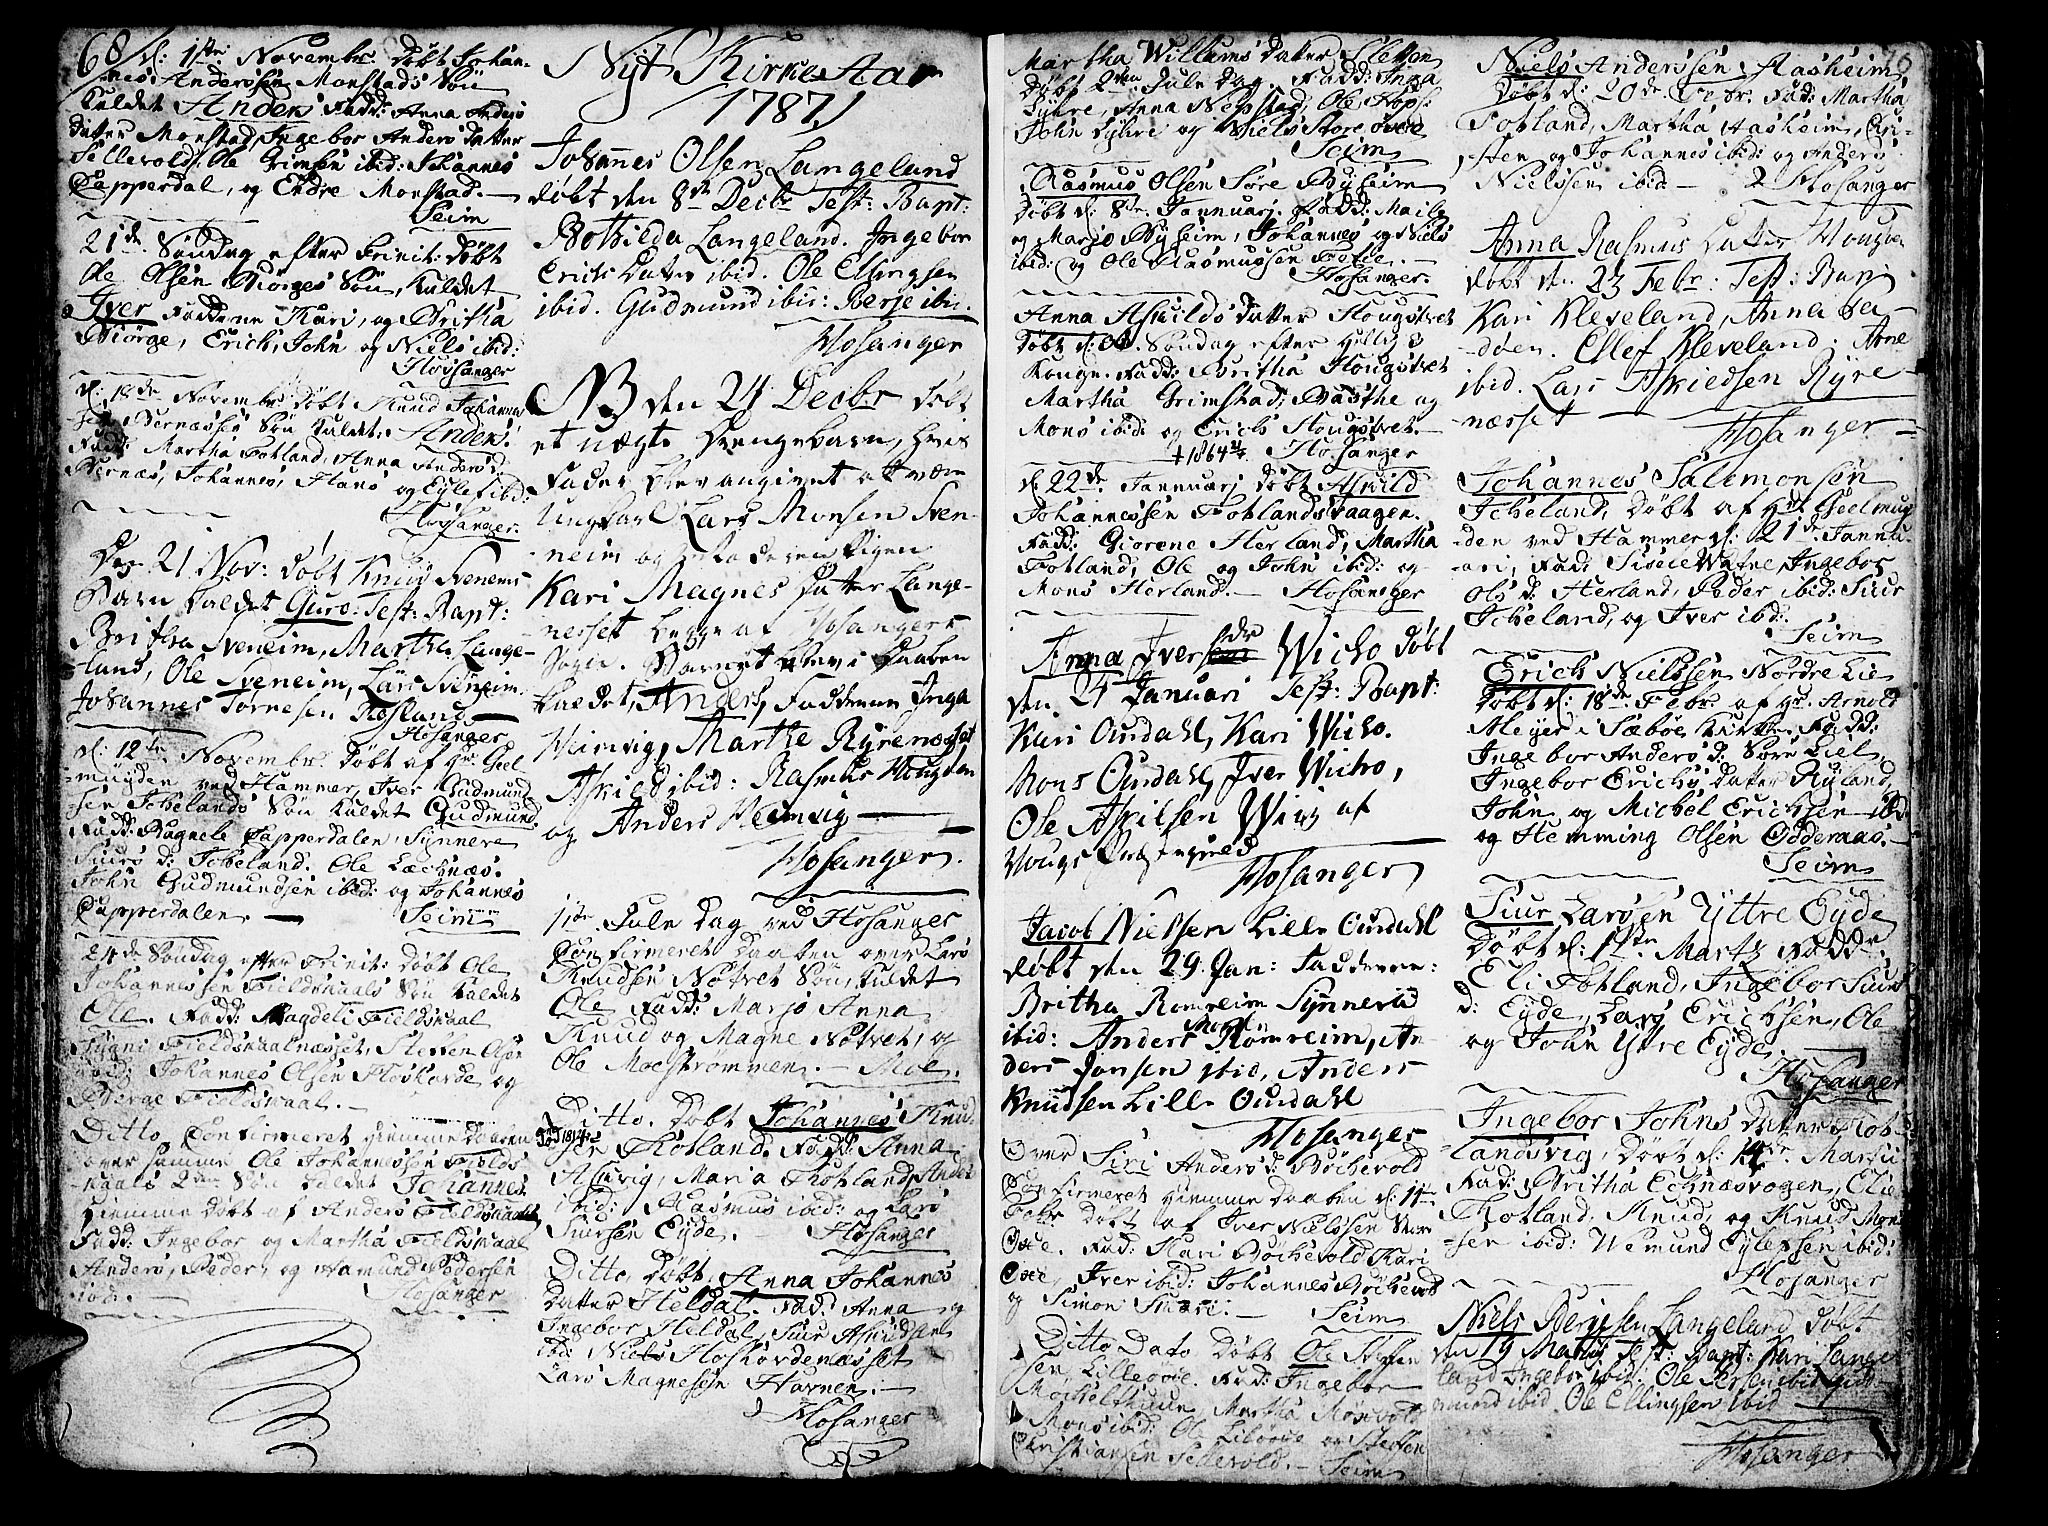 68
d: 1ste Novembr: døbt Johan-
nes Anderssen Monstads Søn
kaldet Anders. Fadd: Anna Anders
datter Monstad, Ingebor Anders datter
Sellevold, Ole Grimsen ibid: Johannes
Tapperdal, og Endre Monstad. —
Seim
21de Søndag efter Trinit: døbt
Ole Olsen Biørges Søn, kaldet
Iver Faddene Kari, og Britha
Biørge, Erich, John og Niels ibid:
Hossanger
d: 18de Novembr døbt Knud Johannes
sen Bernæsses Søn kaldet, Anders.
Fadd: Martha Fotland, Anna Anders d.
Bernæs, Johannes, Hans og Eylef ibid:
Hossanger
Den 21 Nov: døbt Knud Svenems
Barn kaldet Guro: Test: Bapt:
Britha Sveneim, Martha Lange-
land, Ole Sveneim, Lars Sveneim
Johannes Tornesen Røsland
Hosanger
d: 12te Novembr: døbt af Hr: Geel
muyden ved Hammer, Iver Gudmund
sen Ichelands Søn kaldet Gudmund.
Fadd: Ragnele Tapperdalen, Synneve
Siurs d: Icheland. Ole Lechnæs.
John Gudmundsen ibid: og Johannes
Tapperdalen. — Seim
24de Søndag efter Trinit: døbt Ole
Johannessen Fieldskaals Søn kaldet
Ole. Fadd: Magdeli Fieldskaal
Sygni Fieldskaalnæsset, Steffen
ibid: Johannes Olsen Floskorde og
Berge Fieldskaal. —
Ditto, Confirmeret hiemme daaben
over samme Ole Johannessen Fields
kaals 2den Søn kaldet Johannes
hiemme døbt af Anders Fieldskaal
Fadd: Ingebor og Martha Fieldskaal
Anders, Peder, og Vamund Pedersen
ibid. — Hosanger
Nyt Kirke Aar
1787
Johannes Olsen Langeland
døbt den 8de Decbr Test: Bapt:
Bothilda Langeland. Ingebor
Erichs Datter ibid. Ole Ellingsen
ibid. Gudmund ibid: Berje ibid.
Hosanger
NB den 24 Decbr døbt
et uægte Drengebarn, hvis
Fader blev angivet at være
Ungkarl Lars Monsen Sven-
neim og Moderen Pigen
Kari Magnes Datter Lange-
nesset begge af Hosangers
Sogn. Barnet blev i Daaben
kaldet, Anders, Faddene Inga
Heimvig, Marthe Ryrenesset
Askild ibid: Rasmus Hougden
og Anders Heimvig —
Hosanger
1ste Jule Dag ved Hosanger
Confirmeret Daaben over Lars
Knudsen Nøtvet Søn kaldet
Ole Fadd: Marjo Anna
Knud og Magne Nøtvet, og
Ole Moestrømmen. — Moe.
Ditto. døbt Johannes Knud
sen Fotland. Fadd: Anna
Askvig, Maria Fotland, Anders
ibid: Rasmus ibid: og Lars
Siursen Eyde. — Hosanger
Ditto, døbt, Anna Johannes
datter Heldal. Fad: Anna og
Ingebor Heldal, Siur Asmudsen
ibid: Niels Floskordenæsset
Lars Magnesen Havnen. —
Hosanger
Martha Willums datter Sletten
døbt 2den Jule Dag. Fadd: Inga
Dyhre, Anna Nepstad, Ole Hops
John Dyhre og Niels Store
Seim
Rasmus Olsen Søre Byheim
døbt d: 8te Jannuarj. Fadd: Maile
og Marjo Byheim, Johannes og Niels
ibid: og Ole Rasmussen Totle. —
Hosanger.
Anna Askilds datter Hougstvet
døbt d: Søndag efter Hellig 3
Konge. Fadd: Britha Hougstvet
Martha Grimstad, Barthe og
Mons ibid: og Erich Hougstvet. —
+1864 Hosanger
d: 22de Jannuarj døbt Askild
Johannessen Fotlandsvaagen.
Fadd: Giorene Herland, Martha
Fotland, Ole og John ibid: og
Mons Herland. — Hosanger
Anna Iversdr Wicho døbt
den 24 Januari Test: Bapt:
Kari Oundahl, Kari Wicho.
Mons Oundahl, Iver Wicho,
Ole Askilsen Wiig af
Hougs Præstegield
Hosanger
Jacob Nielsen Lille Oundahl
døbt den 29 Jan: Faddere:
Britha Romreim Synneva
ibid: Anders Mons Romreim, An-
ders Jonsen ibid, Anders
Knudsen Lille Oundahl
Hosanger
Over Siri Anders d: Bøchevold
Confirmeret hiemme daaben d: 11te
Febr døbt af Iver Nielssen
Oxe. Fad: Kari Bøchevold Kari
Oxe, Iver ibid: Johannes Bøchevold
og Simon — Seim
Ditto Dato døbt Ole Steffen
sen, Lillesøe. Fad: Ingebor
Mochelthuun Martha Monsvold
Mons ibid: Ole Lilsøe og Steffen
Christiansen Sellevold. — Seim
Niels Anderssen Aasheim,
døbt d: 20de Febr. Fad: Martha
Fotland, Martha Aasheim, Chri-
sten og Johannes ibid: og Anders
Nielssen ibid — Hosanger
Anna Rasmus Datter Hougden
døbt den 23 Febr: Test: Bap:
Kari Kleveland, Anna Ha-
døen. Ellef Kleveland. Arne
ibid. Lars Askieldsen Ryre-
næsset —
Hosanger —
Johannes Salemonsen
Icheland, Døbt af Hr Geelmuy-
den ved Hammer d: 21de Jannu-
ari, Fadd Sisele Watne, Ingebor
Ols d: Herland, Peder ibid: Siur
Icheland, og Iver ibid:
Seim
Erich Nielssen Nordre Lie
døbt d: 18de Febr af Hr. Arnold
Meyer i Sæbøe Kirke. Fadd:
Ingebor Anders d: Søre Liel,
Ingebor Erichs datter Ryland,
John og Michel Erichsen ibid
og Hemming Olsen Odderaas. —
Seim
Siur Larssen Yttre Eyde
Døbt d: 1ste Martz Fadd
Eli Fotland, Ingebor Siurs
d: Eyde, Lars Erichsen, Ole
og John Yttre Eyde —
Hosanger
Ingebor Johns datter Fot-
landsvig, Døbt d: 14de Martii
Fad: Britha Echnæsvogen, Elie
Fotland, Knud, og Knud Mon-
sen ibid: Wemund Eylefsen ibid:
Hosanger
Niels Bergesen Langeland døbt
den 19 Martij Test: Bapt: Kari Lange
land Ingebor ibid: Ole Persen ibid Gud-
mund ibid. Ole Ellingsen ibid —
Hosanger